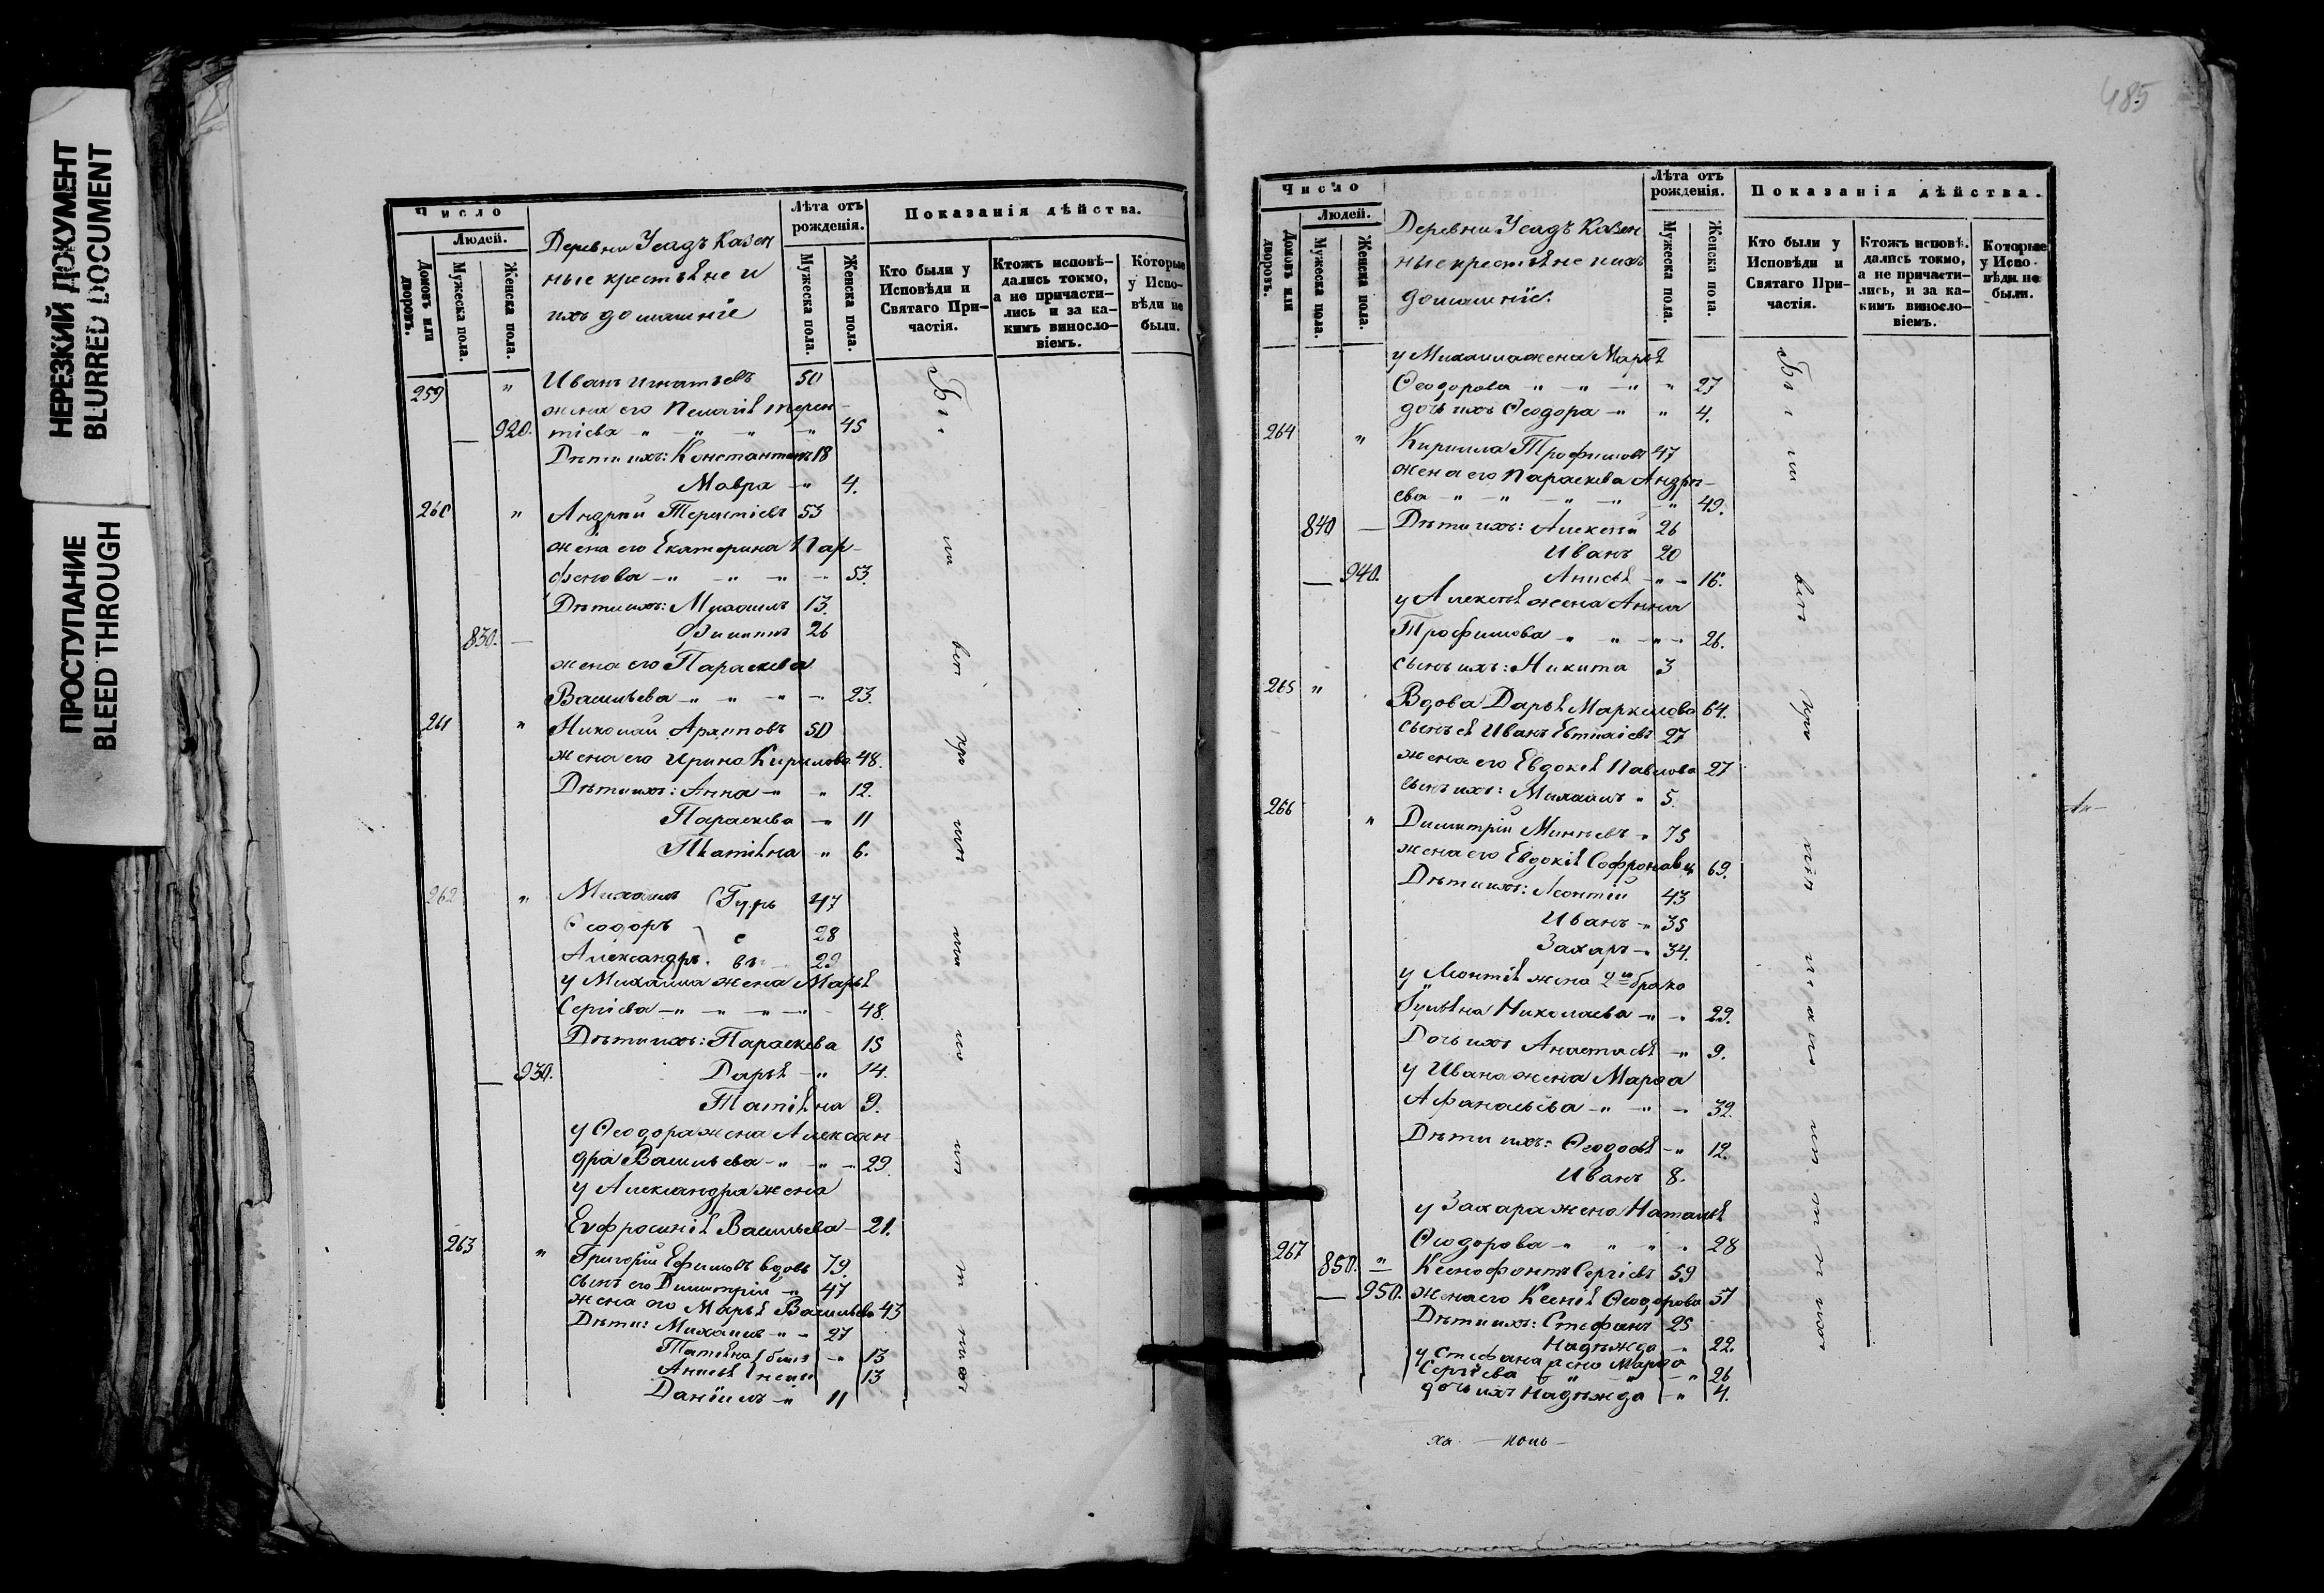 НЕРЕЗКИЙ ДОКУМЕНТ
BLURRED DOCUMENT
ПРОСТУПАНИЕ
BLEED THROUGH
Число
Людей.
Домовъ или дворовъ.
Мужеска пола.
Женска пола.
Деревни Усадъ Казен
ные крестьяне и
ихъ домашніе
Лѣта отъ рожденія.
Мужеска пола.
Женска пола.
Показанія дѣйства.
Кто были у Исповѣди и Святаго Причастія.
Ктожъ исповѣдались токмо, а не причастились и за какимъ винословіемъ.
Которые у Исповѣди не были.
259 " Иванъ Игнатьевъ 50
жена его Пелагея Терен-
— 920. тіева 45
Дѣти ихъ: Константинъ 18
Мавра 4.
260 " Андрей Терентіевъ 53
жена его Екатерина Пар-
фенова 53.
Дѣти ихъ: Михаилъ 13.
830. — Филиппъ 26
жена его Параскева
Васильева 23.
261 " Николай Архиповъ 50
жена его Ирина Кирилова 48.
Дѣти ихъ: Анна 12.
Параскева 11
Татіяна 6.
262 " Михаилъ Гурь 47
Ѳеодоръ е 28
Александръ въ 29
у Михаила жена Марья
Сергіева 48.
Дѣти ихъ: Параскева 15
— 930. Дарья 14.
Татіяна 9.
у Ѳеодора жена Алексан
дра Васильева 29.
у Александра жена
Евфросинія Васильева 21.
263 " Григорій Ефимовъ вдовъ 79.
сынъ его Димитрій 47
жена его Марья Васильева 43
Дѣти: Михаилъ 27
Татіяна близ 13
Анисья нецы 13
Даніилъ 11
485
Число
Людей.
Домовъ или дворовъ.
Мужеска пола.
Женска пола.
Деревни Усадъ Казен
ные крестьяне и ихъ
домашніе.
Лѣта отъ рожденія.
Мужеска пола.
Женска пола.
Показанія дѣйства.
Кто были у Исповѣди и Святаго Причастія.
Ктожъ исповѣ. дались токмо, а не причастились, и за какимъ винословіемъ.
Которые у Исповѣди не были.
у Михаила жена Марья
Ѳеодорова 27
дочь ихъ Ѳеодора 4.
264 " Кирилла Трофимовъ 47
жена его Параскева Андрѣ-
ева 49.
840 — Дѣти ихъ: Алексѣй 26
Иванъ 20
— 940. Анисья 16.
у Алексѣя жена Анна
Трофимова 26.
сынъ ихъ: Никита 3
265 " Вдова Дарья Маркелова 64.
сынъ ея Иванъ 27
жена его Евдокія Павлова 27
сынъ ихъ: Михаилъ 5.
266 " Димитрій Минѣевъ 75
жена его Евдокія Софронова 69.
Дѣти ихъ: Леонтій 43
Иванъ 35
Захаръ 34.
у Леонтія жена 2го брака
Іуліана Николаева 29.
Дочь ихъ Анастасія 9.
у Ивана жена Марѳа
Афанасьева 32.
Дѣти ихъ: Ѳеодосья 12.
Иванъ 8.
у Захара жена Наталья
Ѳеодорова 28
267 850. " Ксенофонтъ Сергіевъ 59
— 950. жена его Ксенія Ѳеодорова 57
Дѣти ихъ: Стефанъ 25
Надѣжда 22.
у Стефана жена Марѳа
Сергіева 26
дочь ихъ Надѣжда 4.